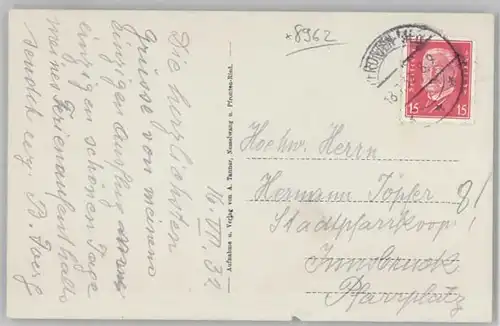 *8962
16. VIII. 32
Die herzlichsten
Grüsse von meinem
Einzigen Ausflug
einzigen schönen Tage
meines Ferienaufenthalts
sendet erg. B.
Aufnahme u. Verlag von A. Tanner, Nesselwang u. Pfronten-Ried.
PFRONTEN
15 15
Hochw. Herrn
Hermann Töpfer
Stadtpfarrkoop.
Innsbruck
Pfarrplatz